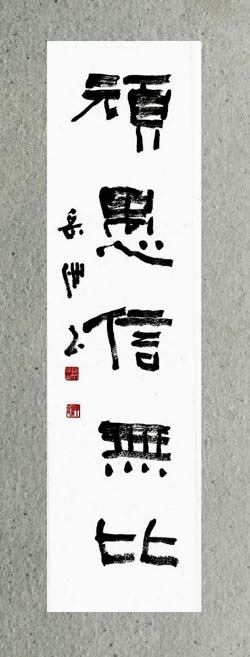 頑愚信無比